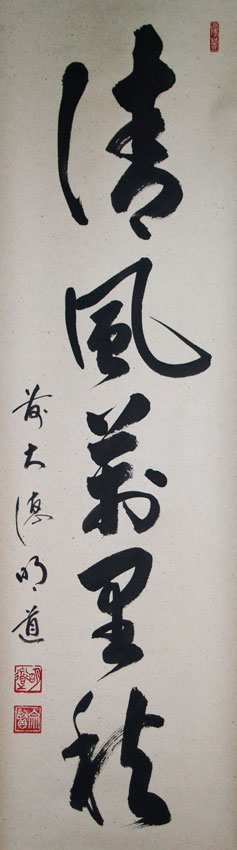 清風萬里秋
前大徳明道